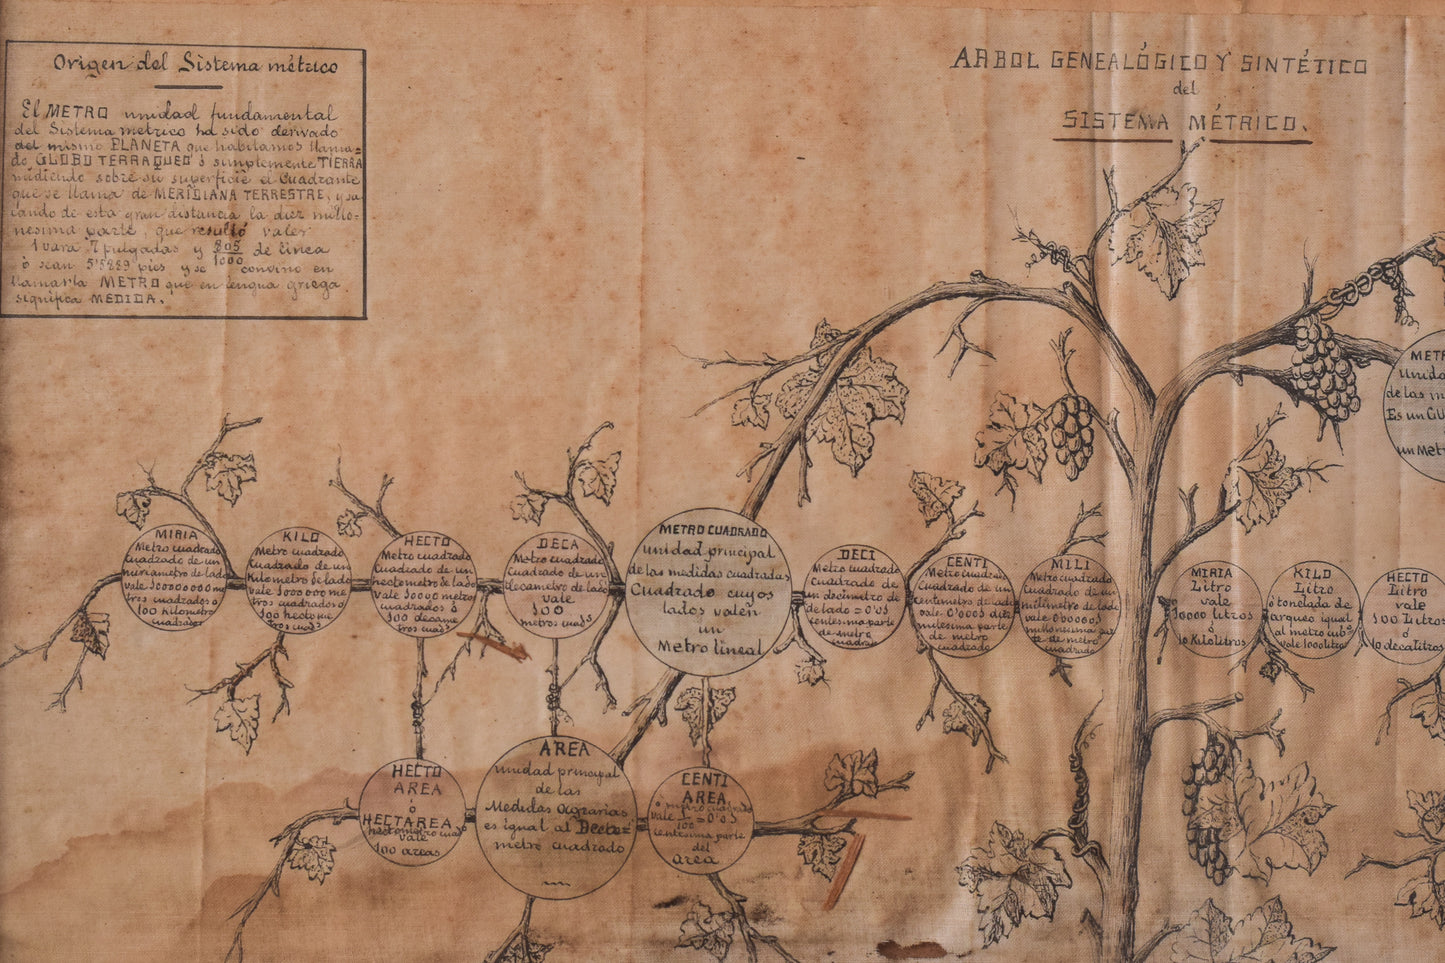 Origen del Sistema métrico
El METRO unidad fundamental
del Sistema metrico ha sido derivado
del mismo PLANETA que habitamos llama=
do GLOBO TERRAQUEO ó simplemente TIERRA
midiendo sobre su superficie el Cuadrante
que se llama de MERIDIANA TERRESTRE, y sa
cando de esta gran distancia la diez millo=
nesima parte, que resultó valer
1 vara 7 pulgadas y 805/1000 de linea
ó sean pies y se convino en
llamarla METRO que en lengua griega
significa MEDIDA.
ARBOL GENEALÓGICO Y SINTÉTICO
del
SISTEMA MÉTRICO.
METR
unida
de las m
Es un Cu
un Metr
MIRIA
Metro cuadrado
Cuadrado de un
miriametro de lado
vale 100000000 me
tros cuadrados ó
100 Kilometro
cuadrados
KILO
Metro cuadrado
Cuadrado de un
Kilometro de lado
vale 1000000 me
tros cuadrados ó
100 hectome
tros cuads
HECTO
Metro cuadrado
Cuadrado de un
hectometro de lado
vale 10000 metros
cuadrados ó
100 decame
tros cuads
DECA
Metro cuadrado
Cuadrado de un
decametro de lado
vale
100
metros cuads
METRO CUADRADO
unidad principal
de las medidas cuadradas
Cuadrado cuyos
lados valen
un
Metro lineal
DECI
Metro cuadrado
cuadrado de
un decimetro de
de lado = 0'01
centesima parte
de metro
cuadrado
CENTI
Metro cuadrado
Cuadrado de un
centimetro de lado
vale 0'0001 diez
milesima parte
de metro
cuadrado
MILI
Metro cuadrado
Cuadrado de un
milimetro de lado
vale 0'000001
millonesima par
te de metro
cuadrado
MIRIA
Litro
vale
10000 litros
ó
10 Kilolitros
KILO
Litro
ó tonelada de
arqueo igual
al metro cubº
vale 1000 litros
HECTO
Litro
vale
100 Litros
ó
10 decalitros
HECTO
AREA
ó
HECTAREA
hectometro cuadº
vale
100 areas
AREA
unidad principal
de las
Medidas Agrarias
es igual al Deca=
metro cuadrado
CENTI
AREA
ó metro cuadrado
vale 1/100 = 0'01
centesima parte
del
area